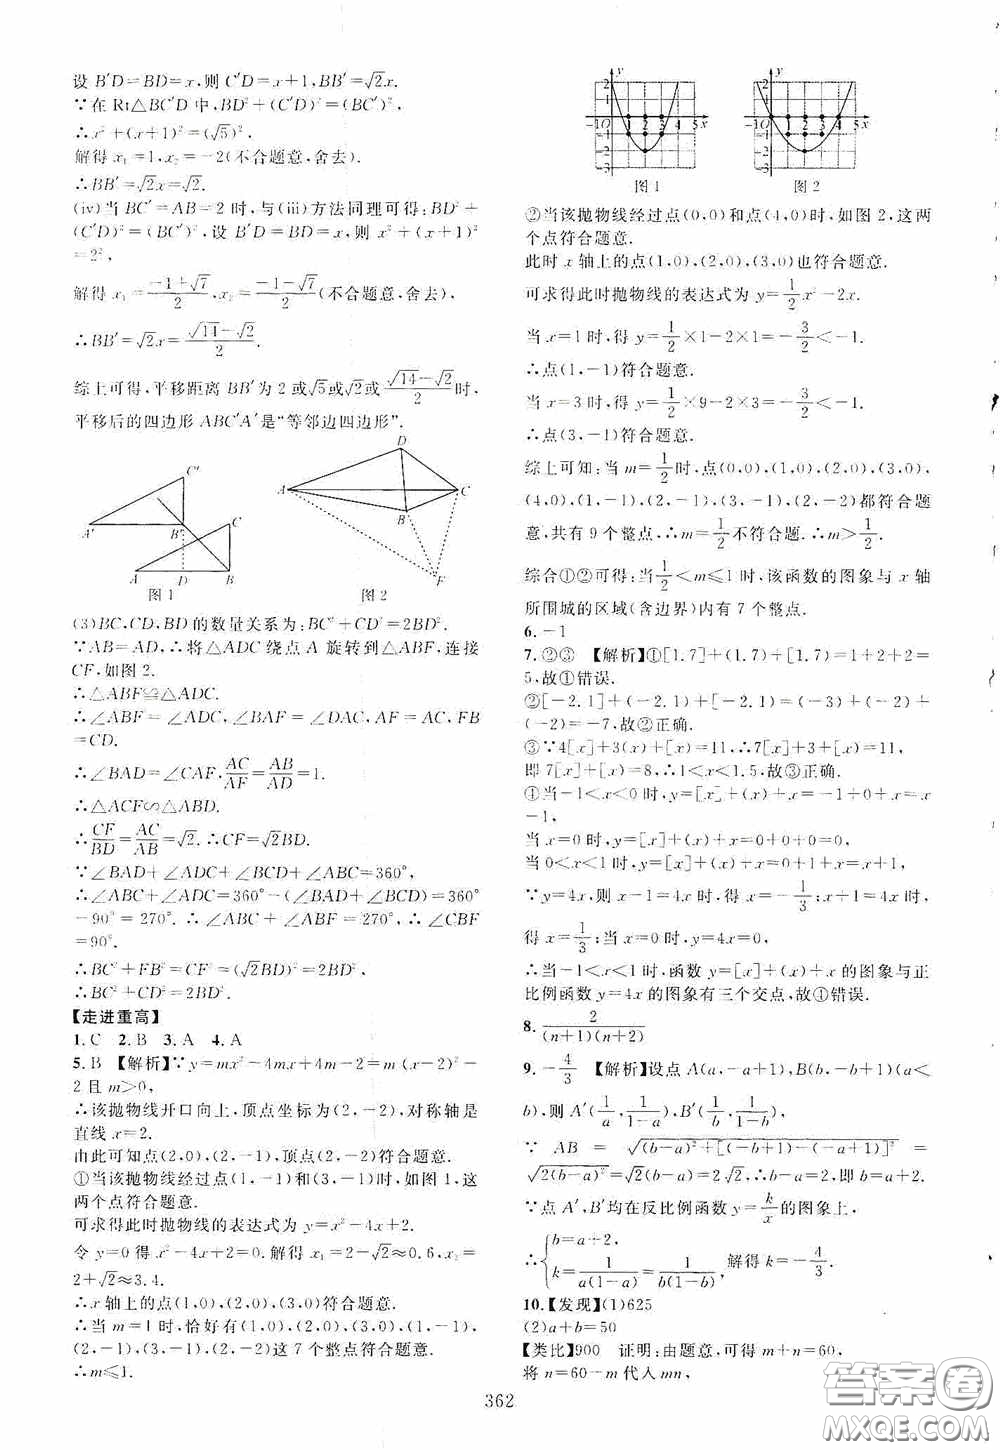 设 B′D=BD=x,则 C′D=x+1,BB′=√2x.
∵在 Rt△BC′D 中,BD²+(C′D)²=(BC′)²,
∴x²+(x+1)²=(√5)².
解得 x₁=1,x₂=-2(不合题意,舍去).
∴BB′=√2x=√2.
(iv)当 BC′=AB=2 时,与(iii)方法同理可得:BD²+
(C′D)²=(BC′)²,设 B′D=BD=x,则 x²+(x+1)²
=2²,
解得 x₁=(-1+√7)/2,x₂=(-1-√7)/2(不合题意,舍去),
∴BB′=√2x=(√14-√2)/2.
综上可得,平移距离 BB′为 2 或√5或√2或(√14-√2)/2时,
平移后的四边形 ABC′A′是“等邻边四边形”.
C′
A′ B′ C
A D B
图 1
D
A C
B
F
图 2
(3)BC,CD,BD 的数量关系为:BC²+CD²=2BD².
∵AB=AD,∴将△ADC 绕点 A 旋转到△ABF,连接
CF,如图 2.
∴△ABF≌△ADC.
∴∠ABF=∠ADC,∠BAF=∠DAC,AF=AC,FB
=CD.
∴∠BAD=∠CAF,AC/AF=AB/AD=1.
∴△ACF∽△ABD.
∴CF/BD=AC/AB=√2.∴CF=√2BD.
∵∠BAD+∠ADC+∠BCD+∠ABC=360°,
∴∠ABC+∠ADC=360°-(∠BAD+∠BCD)=360°
-90°=270°.∴∠ABC+∠ABF=270°,∴∠CBF
=90°.
∴BC²+FB²=CF²=(√2BD)²=2BD².
∴BC²+CD²=2BD².
【走进重高】
1.C 2.B 3.A 4.A
5.B 【解析】∵y=mx²-4mx+4m-2=m(x-2)²-
2 且 m>0,
∴该抛物线开口向上,顶点坐标为(2,-2),对称轴是
直线 x=2.
由此可知点(2,0),(2,-1),顶点(2,-2)符合题意.
①当该抛物线经过点(1,-1)和(3,-1)时,如图 1,这
两个点符合题意.
可求得此时抛物线的表达式为 y=x²-4x+2.
令 y=0 得 x²-4x+2=0.解得 x₁=2-√2≈0.6,x₂=
2+√2≈3.4.
∴x 轴上的点(1,0),(2,0),(3,0)符合题意.
∴当 m=1 时,恰好有(1,0),(2,0),(3,0),(1,-1),
(2,-1),(3,-1),(2,-2)这 7 个整点符合题意.
∴m≤1.
y
2
1
-1O 1 2 3 4 5 x
-1
-2
-3
图 1
y
2
1
-1O 1 2 3 4 5 x
-1
-2
-3
图 2
②当该抛物线经过点(0,0)和点(4,0)时,如图 2,这两
个点符合题意.
此时 x 轴上的点(1,0),(2,0),(3,0)也符合题意.
可求得此时抛物线的表达式为 y=1/2x²-2x.
当 x=1 时,得 y=1/2×1-2×1=-3/2<-1.
∴点(1,-1)符合题意.
当 x=3 时,得 y=1/2×9-2×3=-3/2<-1.
∴点(3,-1)符合题意.
综上可知:当 m=1/2时,点(0,0),(1,0),(2,0),(3,0),
(4,0),(1,-1),(2,-1),(3,-1),(2,-2)都符合题
意,共有 9 个整点.∴m=1/2不符合题.∴m>1/2.
综合①②可得:当1/2<m≤1 时,该函数的图象与 x 轴
所围城的区域(含边界)内有 7 个整点.
6.-1
7.②③ 【解析】①[1.7]+(1.7)+[1.7)=1+2+2=
5,故①错误.
②[-2.1]+(-2.1)+[-2.1)=(-3)+(-2)+
(-2)=-7,故②正确.
③∵4[x]+3(x)+[x)=11,∴7[x]+3+[x)=11,
即 7[x]+[x)=8,∴1<x<1.5,故③正确.
①当-1<x<0 时,y=[x]+(x)+x=-1+0+x=x
-1,
当 x=0 时,y=[x]+(x)+x=0+0+0=0,
当 0<x<1 时,y=[x]+(x)+x=0+1+x=x+1,
∵y=4x,则 x-1=4x 时,得 x=-1/3;x+1=4x 时,
得 x=1/3;当 x=0 时,y=4x=0,
∴当-1<x<1 时,函数 y=[x]+(x)+x 的图象与正
比例函数 y=4x 的图象有三个交点,故①错误.
8.2/((n+1)(n+2))
9.-4/3 【解析】设点 A(a,-a+1),B(b,-b+1)(a<
b),则 A′(1/a,1/(1-a)),B′(1/b,1/(1-b)),
∵ AB = √((b-a)²+[(-b+1)-(-a+1)]²) =
√(2(b-a)²)=√2(b-a)=2√2,∴b-a=2,即 b=a+2.
∵点 A′,B′均在反比例函数 y=k/x的图象上,
∴{b=a+2, k=1/(a(1-a))=1/(b(1-b)), 解得 k=-4/3.
10.【发现】(1)625
(2)a+b=50
【类比】900 证明:由题意,可得 m+n=60,
将 n=60-m 代入 mn,
362
答案圈
MXQE.COM